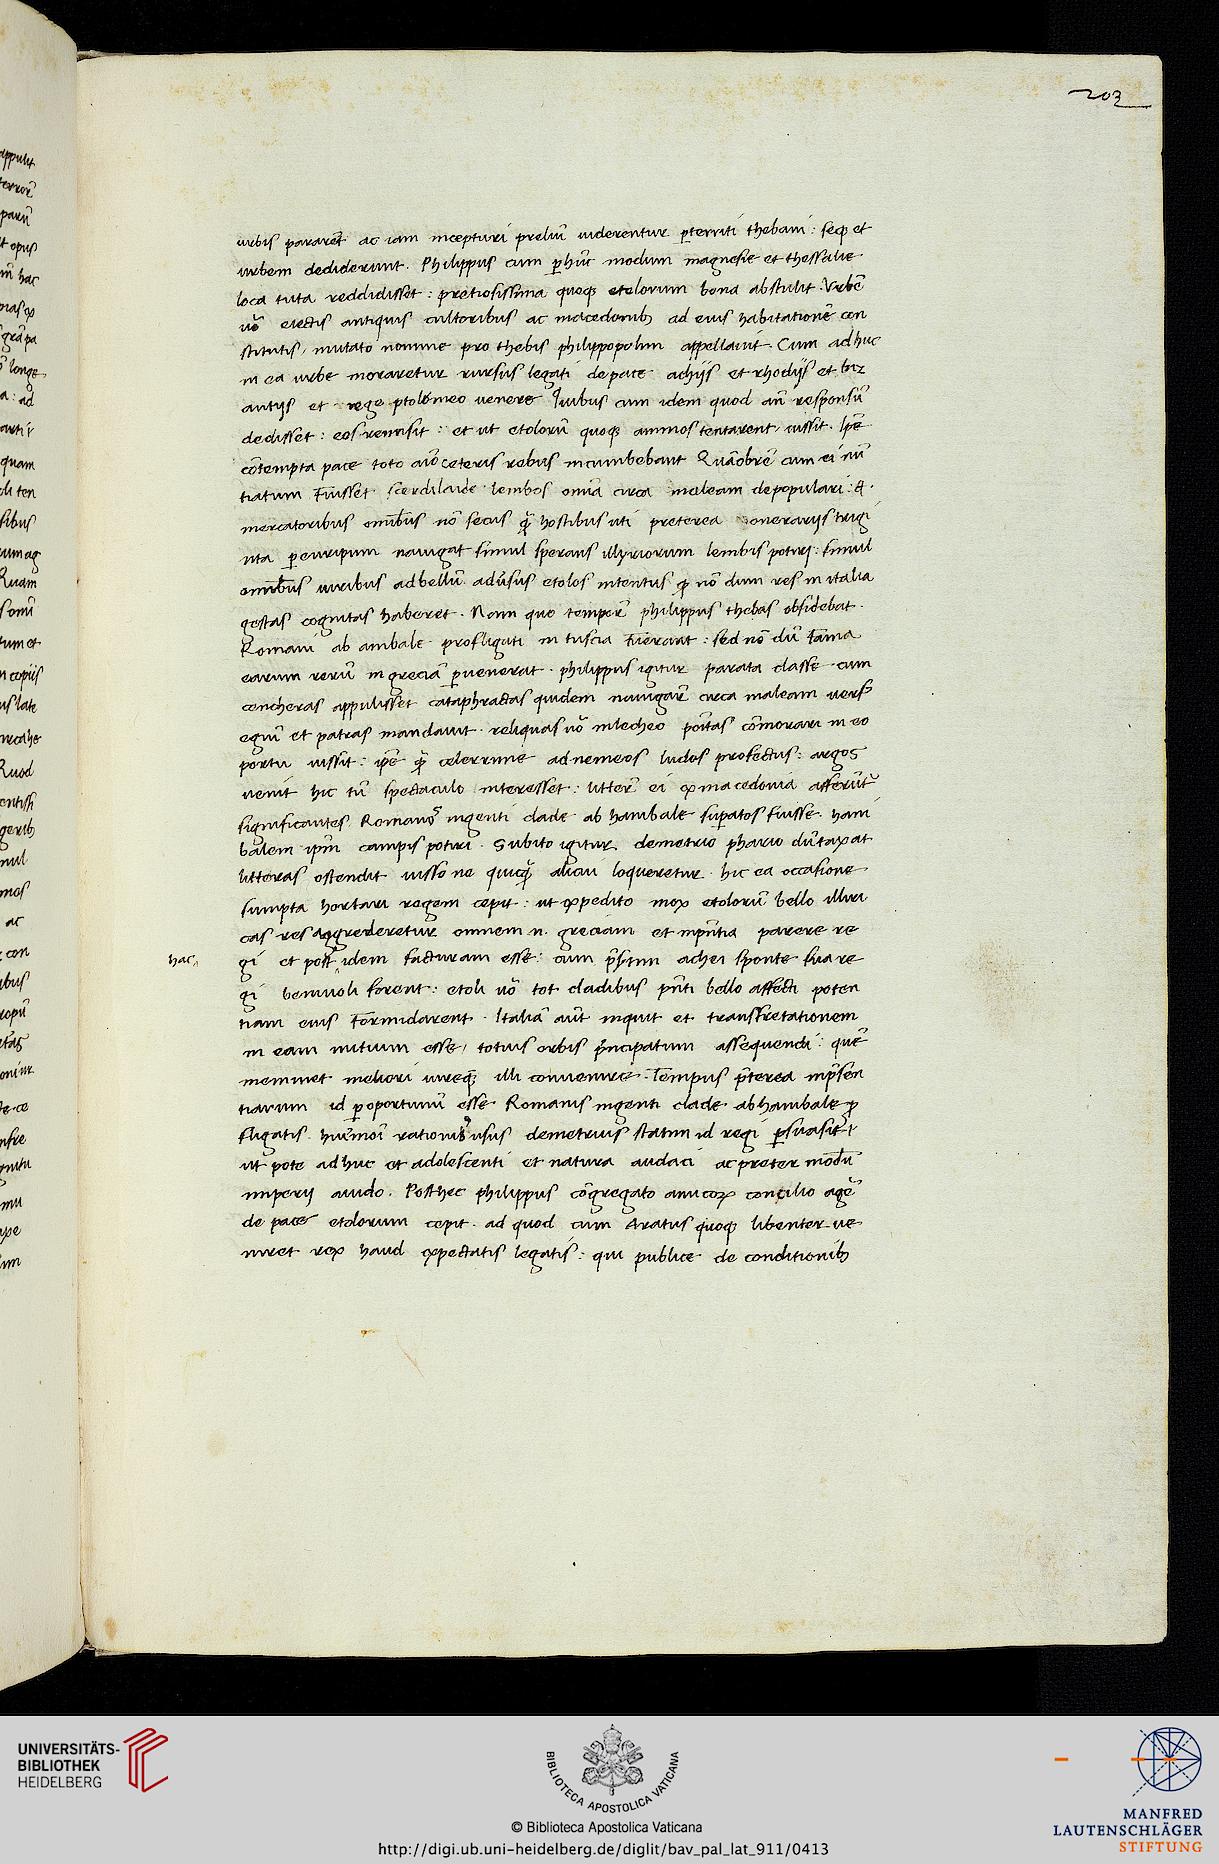 203
urbis pararēt ac iam incepturi preliū uiderentur ꝑterriti thebani : seqꝫ et
urbem dediderunt. Philippus cum ꝑ hūc modum magnesie et thessalie
loca tuta reddidisset : pretiosissima quoqꝫ etolorum bona abstulit. Vrbē
uō eiectis antiquis cultoribus ac macedonibꝫ ad eius habitationē con
stitutis, mutato nomine pro thebis philippopolim appellauit. Cum adhuc
in ea urbe moraretur rursus legati de pace achijs et rhodijs et biz
antijs et rege ptolomeo uenere Quibus cum idem quod an̄ respōsū
dedisset : eos remisit : et ut etolorū quoqꝫ animos tentarent, iussit. Ipē
cōtempta pace toto aīo ceteris rebus incumbebant Quāobrē cum ei nū
tiatum Fuisset scerdilaide lembos omīa circa maleam depopulari : &
mercatoribus omībus nō secus q̄ hostibus uti preterea onerarijs trigi
nta ꝑ euripum nauigat simul sperans illyriorum lembis potiri : simul
omībus uiribus ad bellū adūsus etolos intentus ꝓ nō dum res in italia
gestas cognitas haberet. Nam quo tempoř philippus thebas obsidebat.
Romani ab anibale profligati in tuscia Fuerant : sed nō dū Fama
earum rerū in greciā ꝑuenerat. philippus igitur parata classe cum
cencheras appulisset cataphractas quidem nauigař circa maleam uersꝰ
egiū et patras mandauit. reliquas uō in lecheo portas cōmorari in eo
portu iussit : ipē q̄ celerrime ad nemeos ludos profectus : argos
uenit hic tū spectaculo interesset : litterę ei ex macedonia afferūt̃
significantes Romanoꝰ ingenti clade ab hanibale suꝑatos fuisse. hani
balem ipm̄ campis potiri. Subito igitur demetrio phario dūtaxat
litteras ostendit iusso ne quicq̄ alicui loqueretur. hic ea occasione
sumpta hortari regem cepit : ut expedito mox etolorū bello illiri
cas res aggrederetur omnem n. greciam et inpn̄tia parere re
hac
gi et post idem facturam esse : cum p̄sertim achei sponte sua re
gi beniuoli forent : etoli uō tot cladibus pn̄ti bello affecti poten
tiam eius Formidarent. Italiā aūt inquit et transfretationem
in eam initium esse, totius orbis p̄ncipatum assequendi : quē
meminet meliori iureqꝫ illi conuenire. Tempus p̄terea inp̄sen
tiarum id ꝑoportunū esse Romanis ingenti clade ab hanibale ꝓ
fligatis. huīmoi rationibꝰ usus demetrius statim id regi ꝑsuasit
ut pote adhuc et adolescenti et natura audaci ac preter modū
imperij auido. Posthec philippus cōgregato amicoꝝ concilio agē
de pace etolorum cepit. ad quod cum Aratus quoqꝫ libenter ue
niret rex haud expectatis legatis : qui publice de conditionibꝫ
UNIVERSITÄTS-
BIBLIOTHEK
HEIDELBERG
BIBLIOTECA APOSTOLICA VATICANA
© Biblioteca Apostolica Vaticana
http://digi.ub.uni-heidelberg.de/diglit/bav_pal_lat_911/0413
MANFRED
LAUTENSCHLÄGER
STIFTUNG